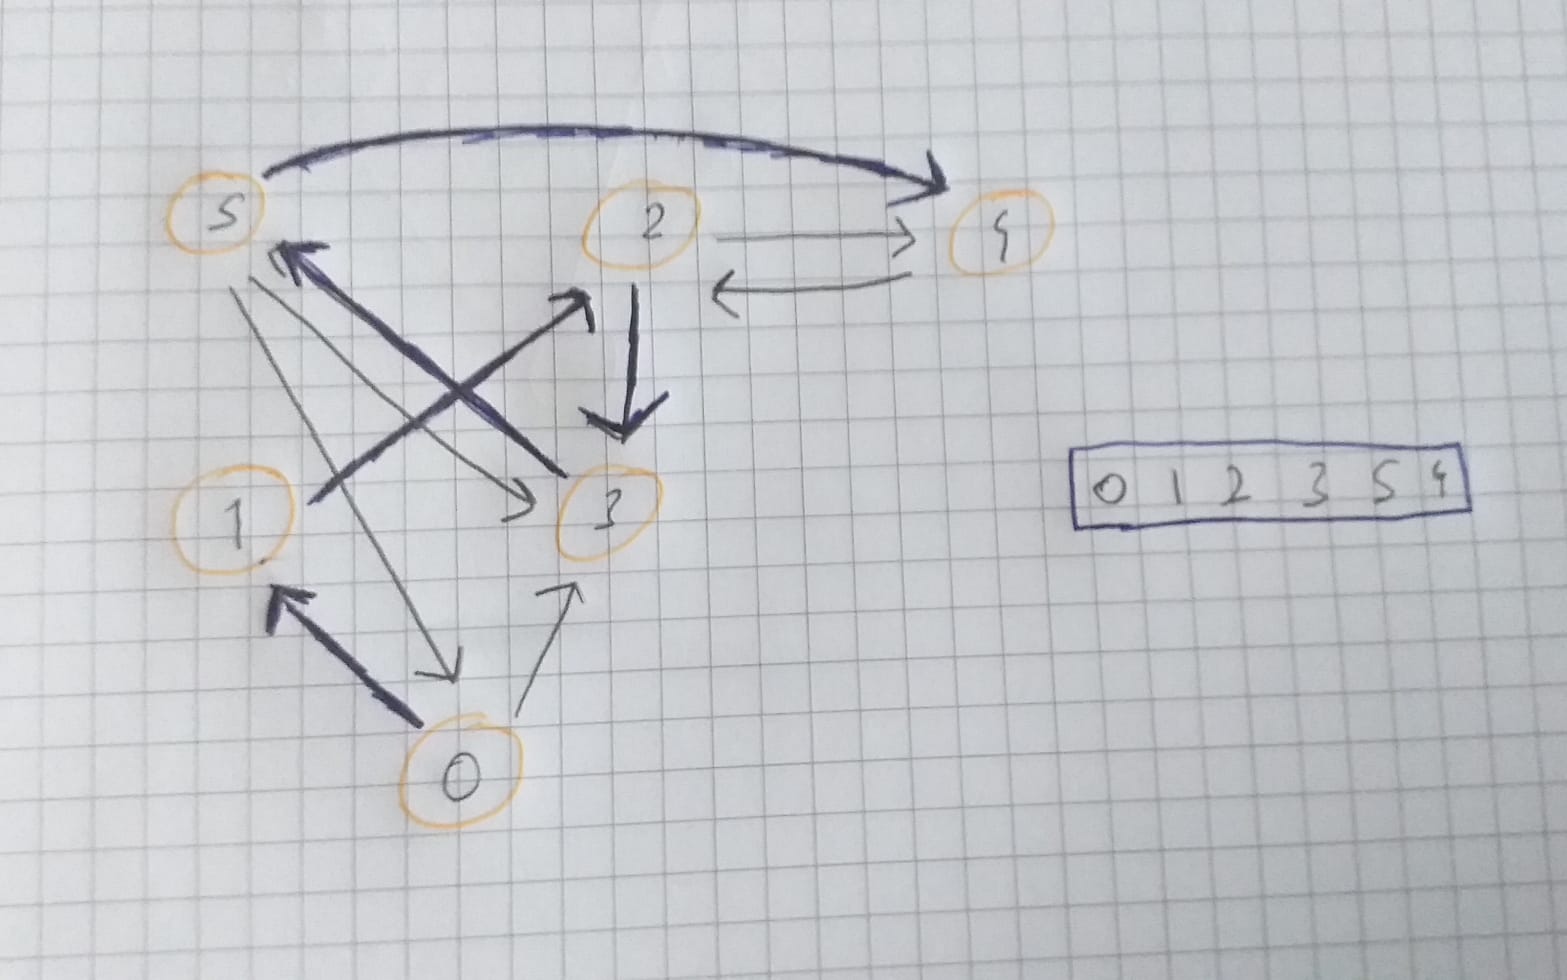 5 2 4
1 3
0 1 2 3 5 4
0